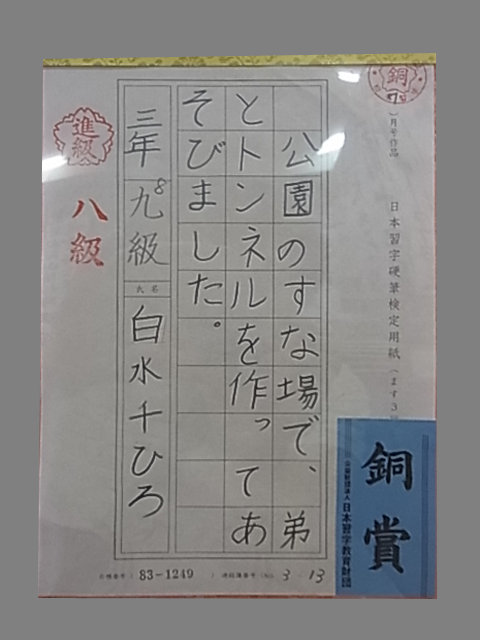 銅
7
月号作品
日本習字硬筆検定用紙
公園のすな場で、弟
とトンネルを作ってあ
そびました。
三年九級
8
氏名
白水千ひろ
進級
八級
銅賞
公益財団法人日本習字教育財団
83-1249
3-13